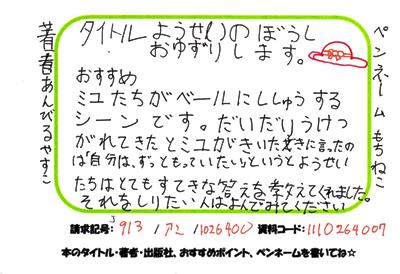 タイトル ようせいのぼうし
おゆずりします。
おすすめ
ミユたちがベールにししゅうする
シーンです。だいだいうけつ
がれてきたとミユがきいたときに言ったの
は「自分は、ずっともっていたい」というとようせい
たちはとてもすてきな答えを考えてくれました。
それをしりたい人はよんでみてください。
ペンネーム もちねこ
著者あんびるやすこ
請求記号: J 913 / アミ / 1026400 資料コード: 1110264007
本のタイトル・著者・出版社、おすすめポイント、ペンネームを書いてね☆